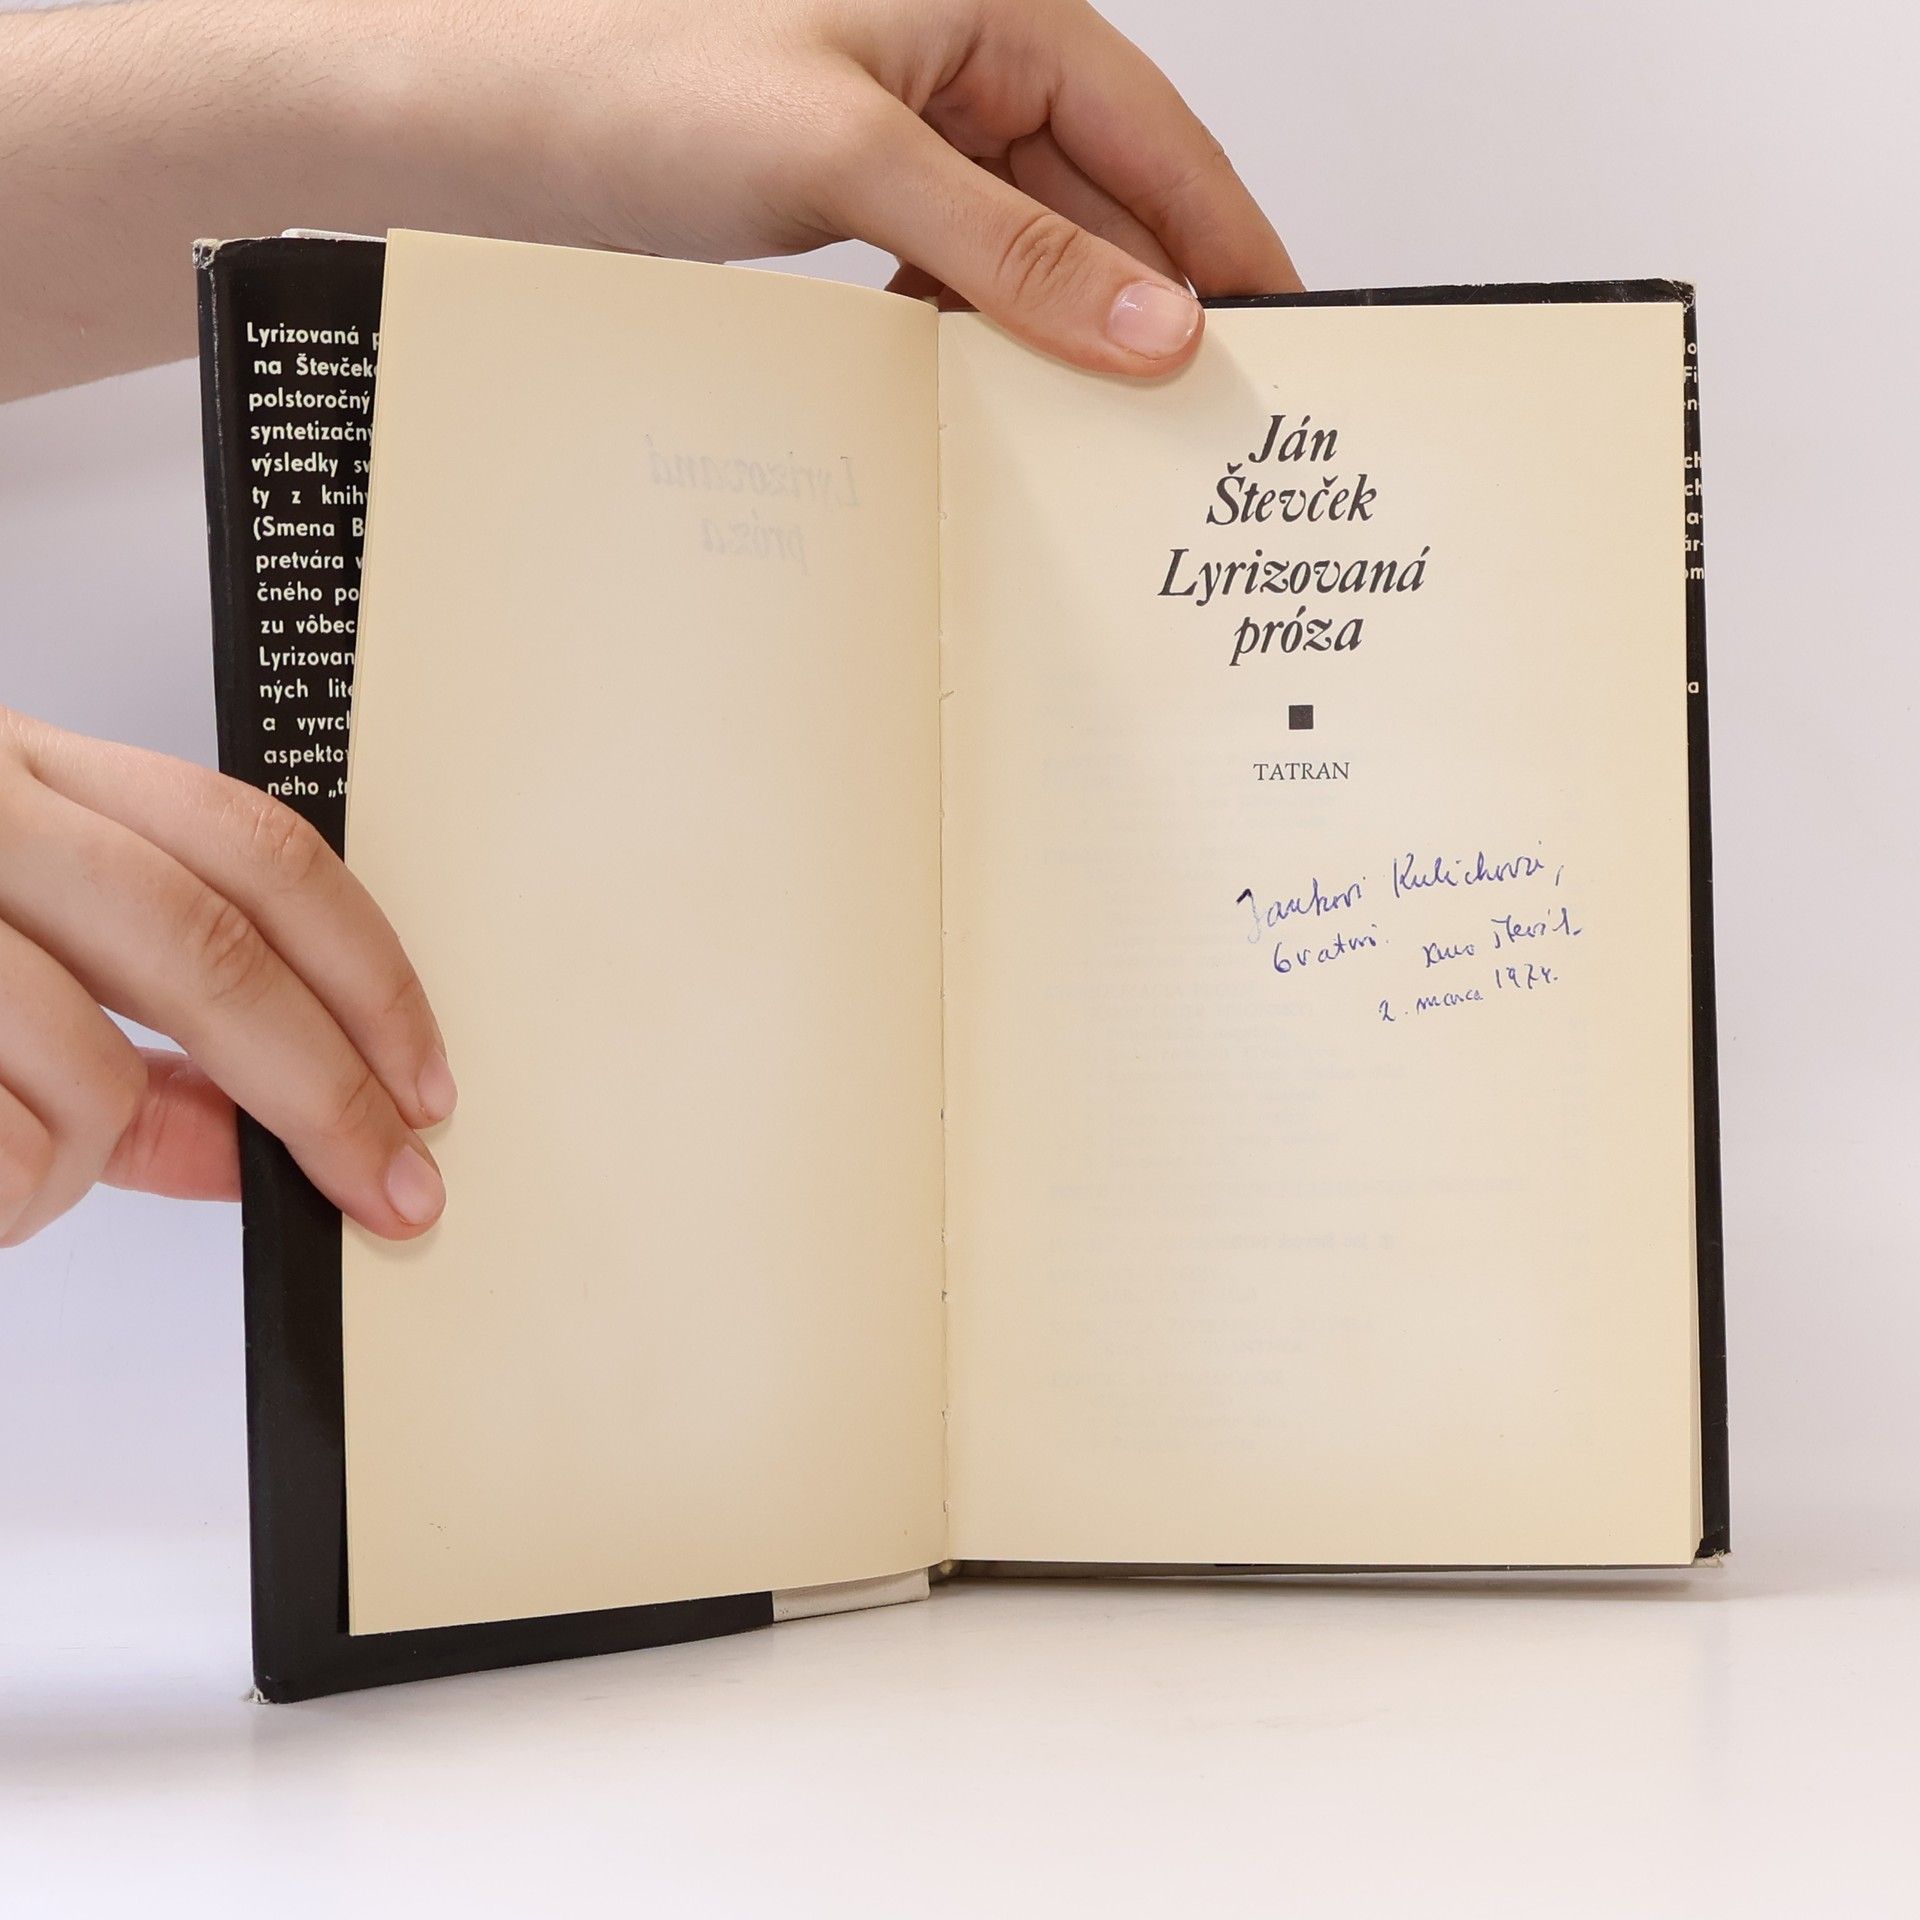 Lyrizovaná
na Števčeko
polstoročný
syntetizačný
výsledky sv
ty z knih
(Smena B
pretvára v
čného po
zu vôbec
Lyrizovan
ných lite
a vyvrch
aspektov
ného „tr
Lyrizovaná
próza
Ján
Števček
Lyrizovaná
próza
TATRAN
Jankovi Kulichovi,
bratovi
2. marca 1974.